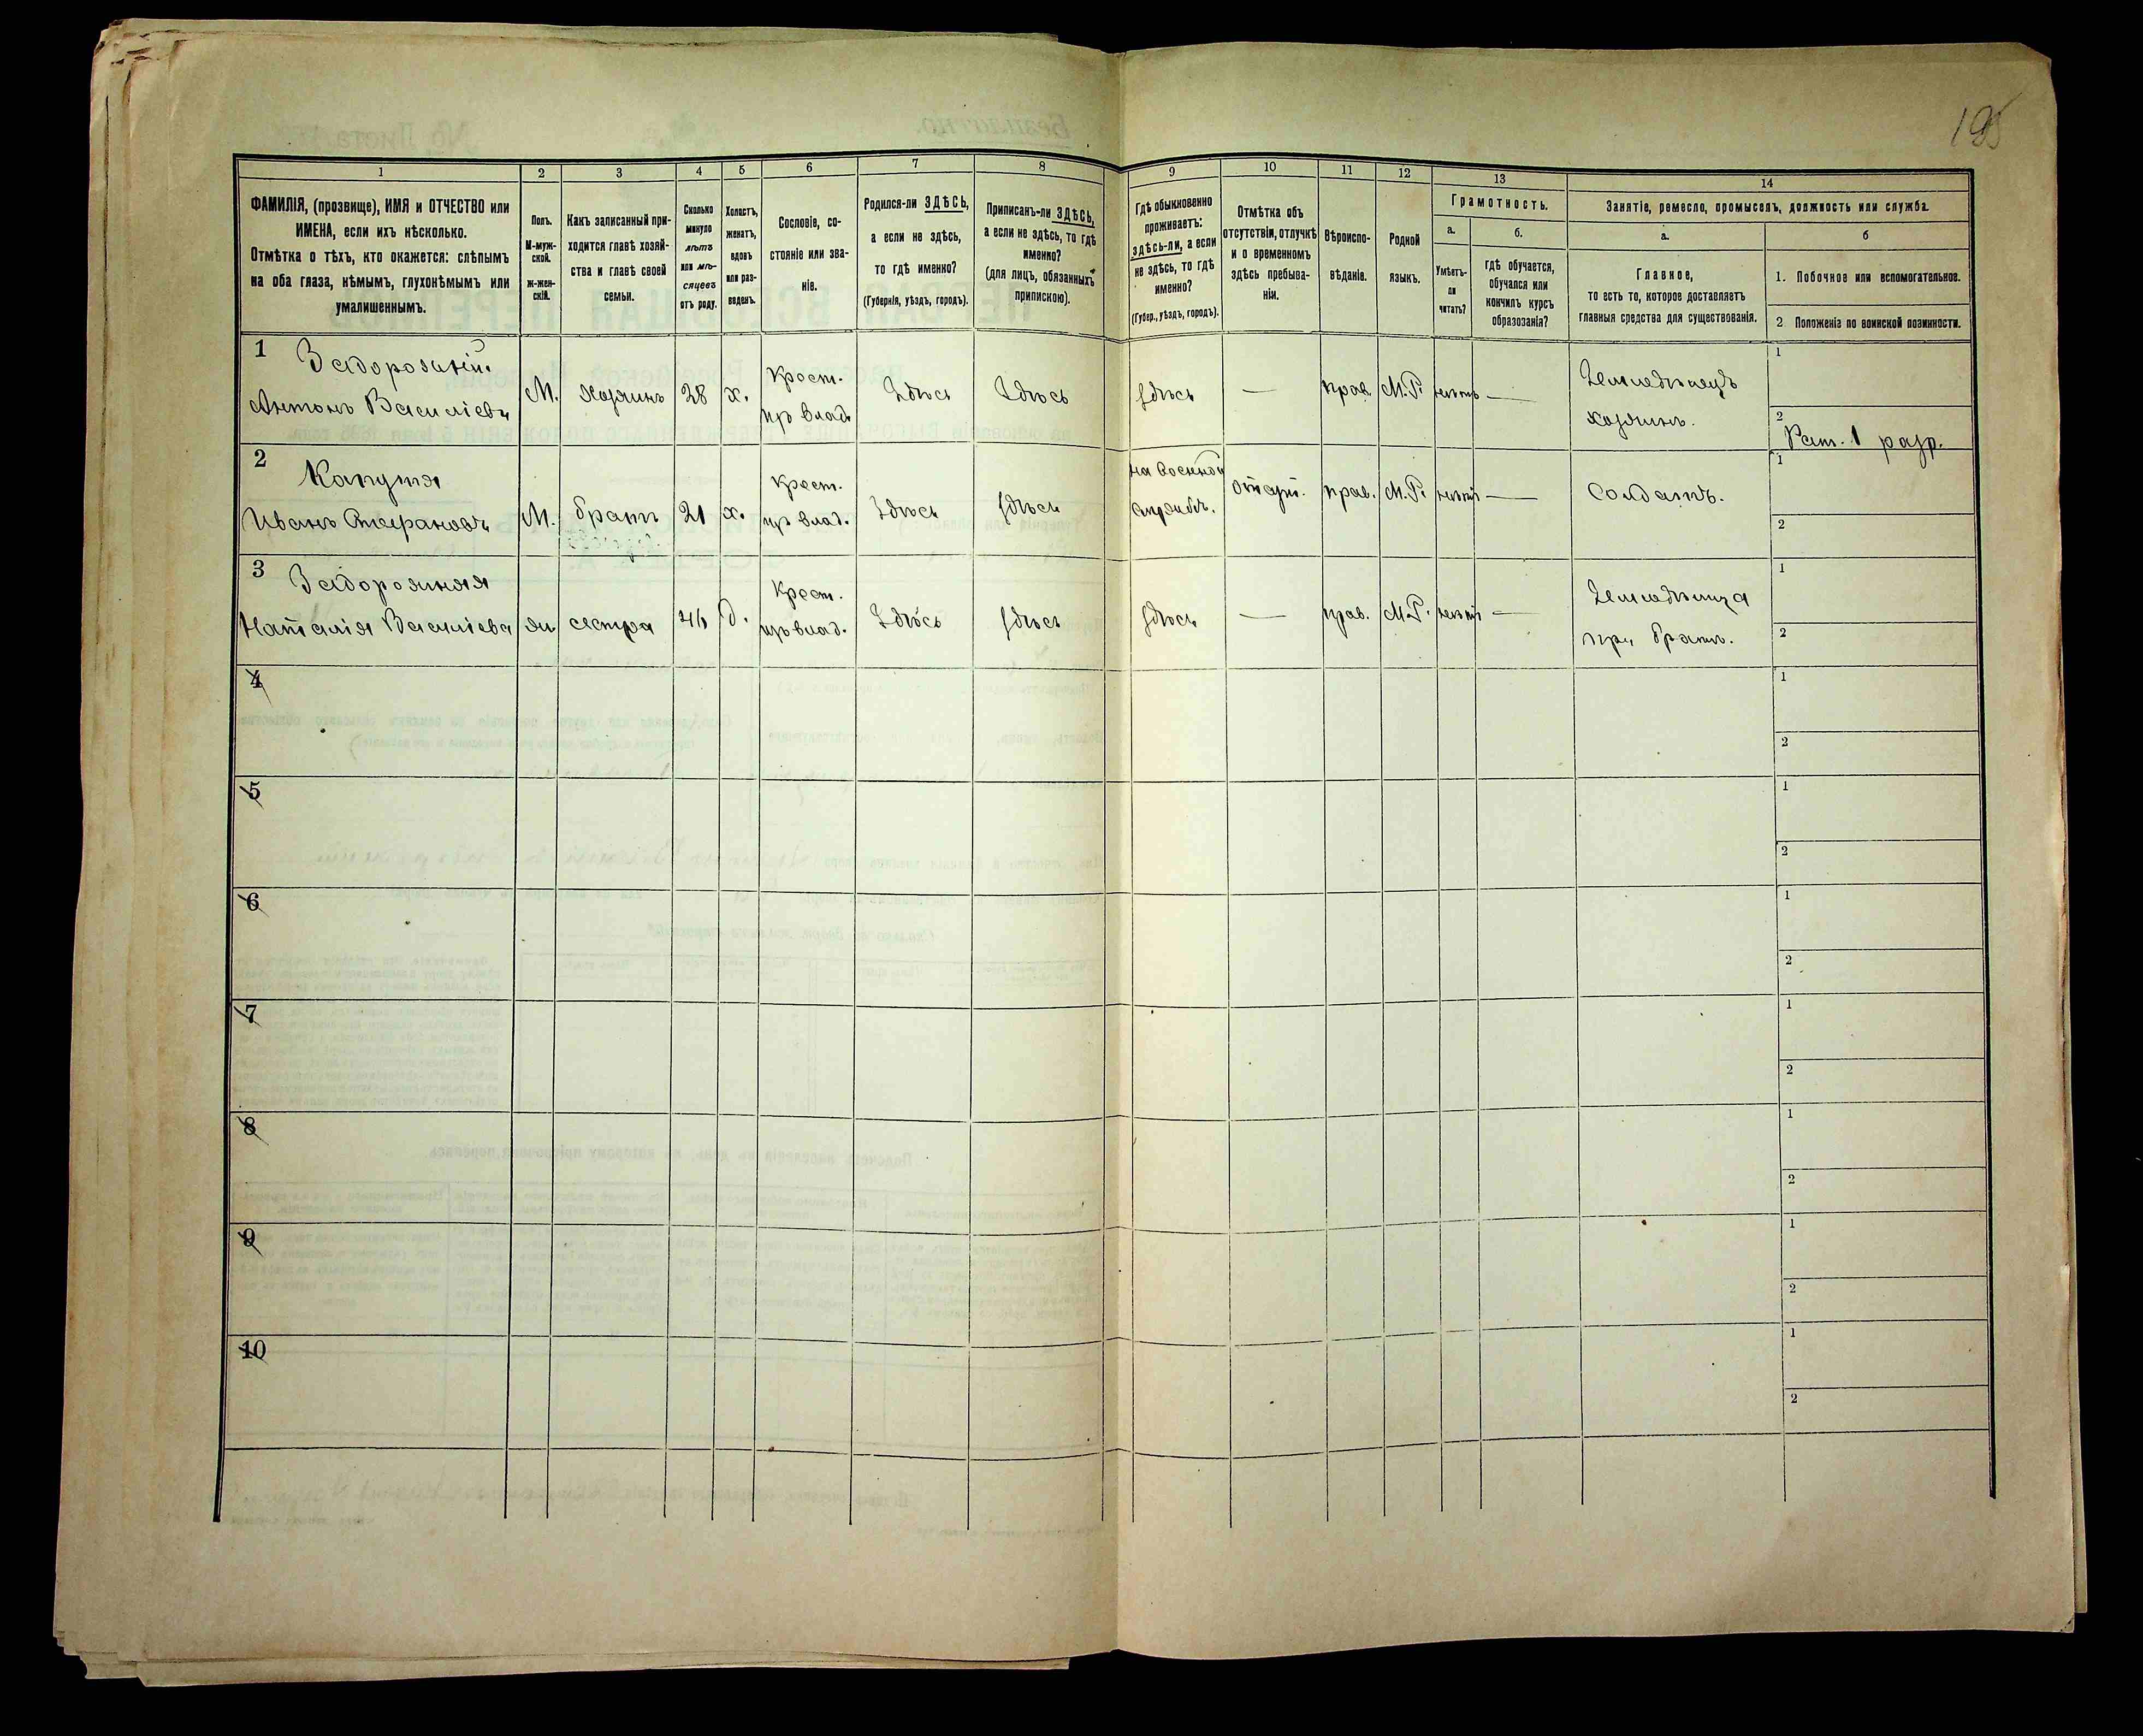 195
1
2
3
4
5
6
7
8
9
10
11
12
13
14
ФАМИЛІЯ, (прозвище), ИМЯ и ОТЧЕСТВО или
ИМЕНА, если ихъ нѣсколько.
Отмѣтка о тѣхъ, кто окажется: слѣпымъ
на оба глаза, нѣмымъ, глухонѣмымъ или
умалишеннымъ.
Полъ.
М-муж-
ской.
ж-жен-
скій.
Какъ записанный при-
ходится главѣ хозяй-
ства и главѣ своей
семьи.
Сколько
минуло
лѣтъ
или мѣ-
сяцевъ
отъ роду.
Холостъ,
женатъ,
вдовъ
или раз-
веденъ.
Сословіе, со-
стояніе или зва-
ніе.
Родился-ли ЗДѢСЬ,
а если не здѣсь,
то гдѣ именно?
(Губернія, уѣздъ, городъ).
Приписанъ-ли ЗДѢСЬ,
а если не здѣсь, то гдѣ
именно?
(для лицъ, обязанныхъ
припискою).
Гдѣ обыкновенно
проживаетъ:
здѣсь-ли, а если
не здѣсь, то гдѣ
именно?
(Губер., уѣздъ, городъ).
Отмѣтка объ
отсутствіи, отлучкѣ
и о временномъ
здѣсь пребыва-
ніи.
Вѣроиспо-
вѣданіе.
Родной
языкъ.
Грамотность.
а.
Умѣетъ-
ли
читать?
б.
гдѣ обучается,
обучался или
кончилъ курсъ
образозанія?
Занятіе, ремесло, промыселъ, должность или служба.
а.
Главное,
то есть то, которое доставляетъ
главныя средства для существованія.
б
1. Побочное или вспомогательное.
2 Положеніе по воинской повинности.
1 Задорожній
Антонъ Васильевъ
М.
хозяинъ
28
х.
Крест.
изъ влад.
Здѣсь
Здѣсь
здѣсь
—
прав.
М.Р.
нѣтъ
—
Земледѣлецъ
хозяинъ.
1
2
Рат. 1 разр.
2 Капуша
Иванъ Стефановъ
М.
братъ
21
х.
Крест.
изъ влад.
Здѣсь
здѣсь
на военной
службѣ.
отлуч.
прав.
М.Р.
нѣтъ
—
Солдатъ.
1
2
3 Задорожняя
Наталія Васильева
ж
сестра
д.
Крест.
изъ влад.
Здѣсь
здѣсь
здѣсь
—
прав.
М.Р.
нѣтъ
—
Земледѣлица
при братѣ.
1
2
4
1
2
5
1
2
6
1
2
7
1
2
8
1
2
9
1
2
10
1
2